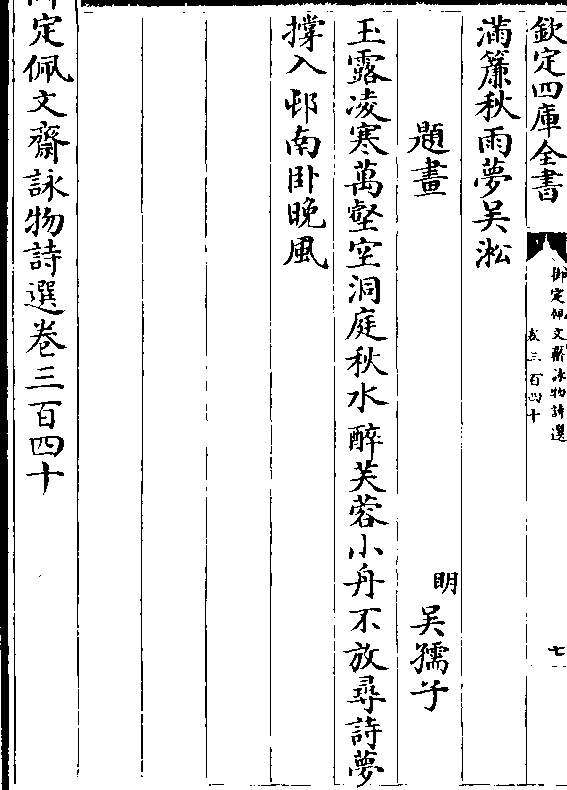 欽定四庫全書
御定佩文齋詠物詩選
卷三百四十
七
滿簾秋雨夢吳淞
題畫
明 吳孺子
玉露凌寒萬壑空洞庭秋水醉芙蓉小舟不放尋詩夢
撑入邨南卧晚風
御定佩文齋詠物詩選卷三百四十